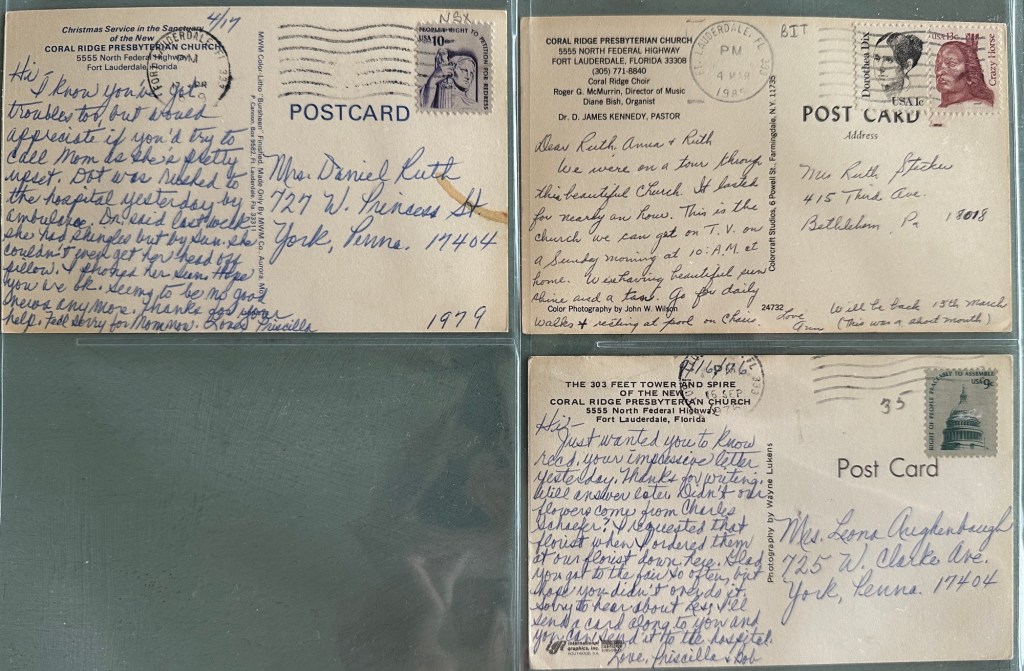 4/17
NBX
Christmas Service in the Sanctuary
of the New
CORAL RIDGE PRESBYTERIAN CHURCH
5555 North Federal Highway
Fort Lauderdale, Florida
FORT LAUDERDALE, FL 333
PM
PEOPLE'S RIGHT TO PETITION FOR REDRESS
USA 10c
Hi!
I know you've got
troubles too, but would
appreciate if you'd try to
call Mom as she's pretty
upset. Dot was rushed to
the hospital yesterday by
ambulance. Dr. said last week
she had shingles but by Sun. she
couldn't even get her head off
pillow. I phoned her Sun. Hope
you're ok. Seems to be no good
news anymore. Thanks for your
help. Feel sorry for Mommow. Love, Priscilla
MWM Color-Litho "Bursheen" Finished. Made Only By MWM Co., Aurora, Mo.
Cannon Box 9582, Ft. Lauderdale, Fla. 33311
POSTCARD
Mrs. Daniel Ruth
727 W. Princess St.
York, Penna. 17404
1979
CORAL RIDGE PRESBYTERIAN CHURCH
5555 NORTH FEDERAL HIGHWAY
FORT LAUDERDALE, FLORIDA 33308
(305) 771-8840
Coral Ridge Choir
Roger G. McMurrin, Director of Music
Diane Bish, Organist
Dr. D. JAMES KENNEDY, PASTOR
FT. LAUDERDALE, FL 333
PM
4 MAR
BIT
Dorothea Dix
USA 1c
USA 13c
Crazy Horse
POST CARD
Address
Dear Ruth, Anna & Ruth
We were on a tour through
this beautiful Church. It lasted
for nearly an hour. This is the
church we can get on T.V. on
a Sunday morning at 10:A.M. at
home. We're having beautiful sun
shine and a tan. Go for daily
walks & resting at pool on Chair.
Love
Ann
Color Photography by John W. Wilson
24732
Colorcraft Studios, 6 Powell St., Farmingdale, N.Y. 11735
Mrs Ruth
415 Third Ave.
Bethlehem, Pa 18018
Will be back 15th March
(This was a short month)
9/16/76
THE 303 FEET TOWER AND SPIRE
OF THE NEW
CORAL RIDGE PRESBYTERIAN CHURCH
5555 North Federal Highway
Fort Lauderdale, Florida
FL 333
PM
15 SEP
1976
RIGHT OF PEOPLE PEACEABLY TO ASSEMBLE
USA 9c
35
Hi!-
Just wanted you to know
recd. your impressive letter
yesterday. Thanks for writing.
Will answer later. Didn't our
flowers come from Charles
Schaefer? I requested that
florist when I ordered them
at our florist down here. Glad
you got to the fair so often, but
hope you didn't overdo it.
Sorry to hear about Les. I'll
send a card along to you and
you can send it to the hospital.
Love, Priscilla & Bob
international
graphics, inc.
Photography by Wayne Lukens
Post Card
Mrs. Leona Aughenbaugh
725 W. Clarke Ave.
York, Penna. 17404